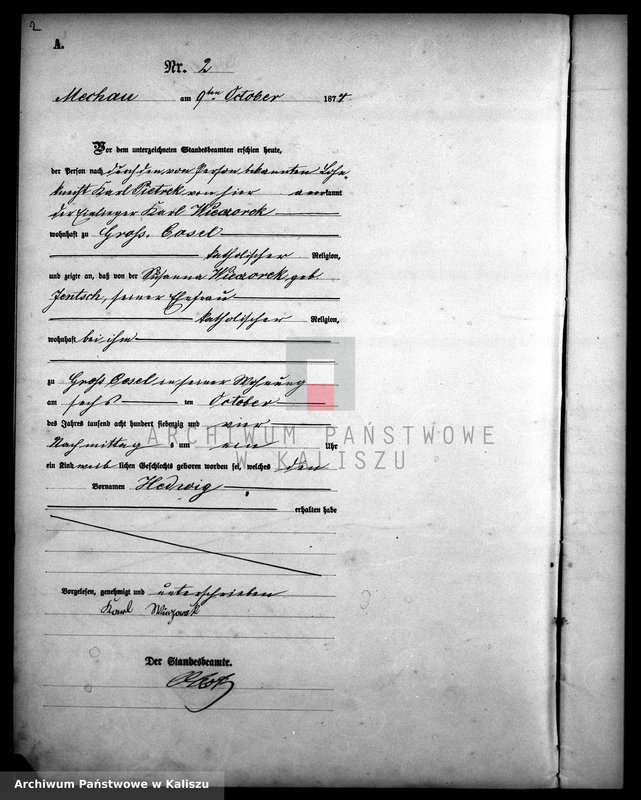 2
A.
Nr. 2
Mechau am 9ten October 1874
Vor dem unterzeichneten Standesbeamten erschien heute,
der Person nach durch den von Person bekannten Lohn-
knecht Karl Pietrek von hier anerkannt
der Einlieger Karl Wieczorek
wohnhaft zu Groß. Cosel
katholischer Religion,
und zeigte an, daß von der Susanna Wieczorek geb
Jentsch, seiner Ehefrau
katholischer Religion,
wohnhaft bei ihm
zu Groß Cosel in seiner Wohnung
am sechs den October
des Jahres tausend acht hundert siebenzig und vier
Nachmittags um Uhr
ein Kind weiblichen Geschlechts geboren worden sei, welches den
Vornamen Hedwig
erhalten habe
Vorgelesen, genehmigt und unterschrieben
Karl
Der Standesbeamte.
ARCHIWUM PAŃSTWOWE
W KALISZU
Archiwum Państwowe w Kaliszu